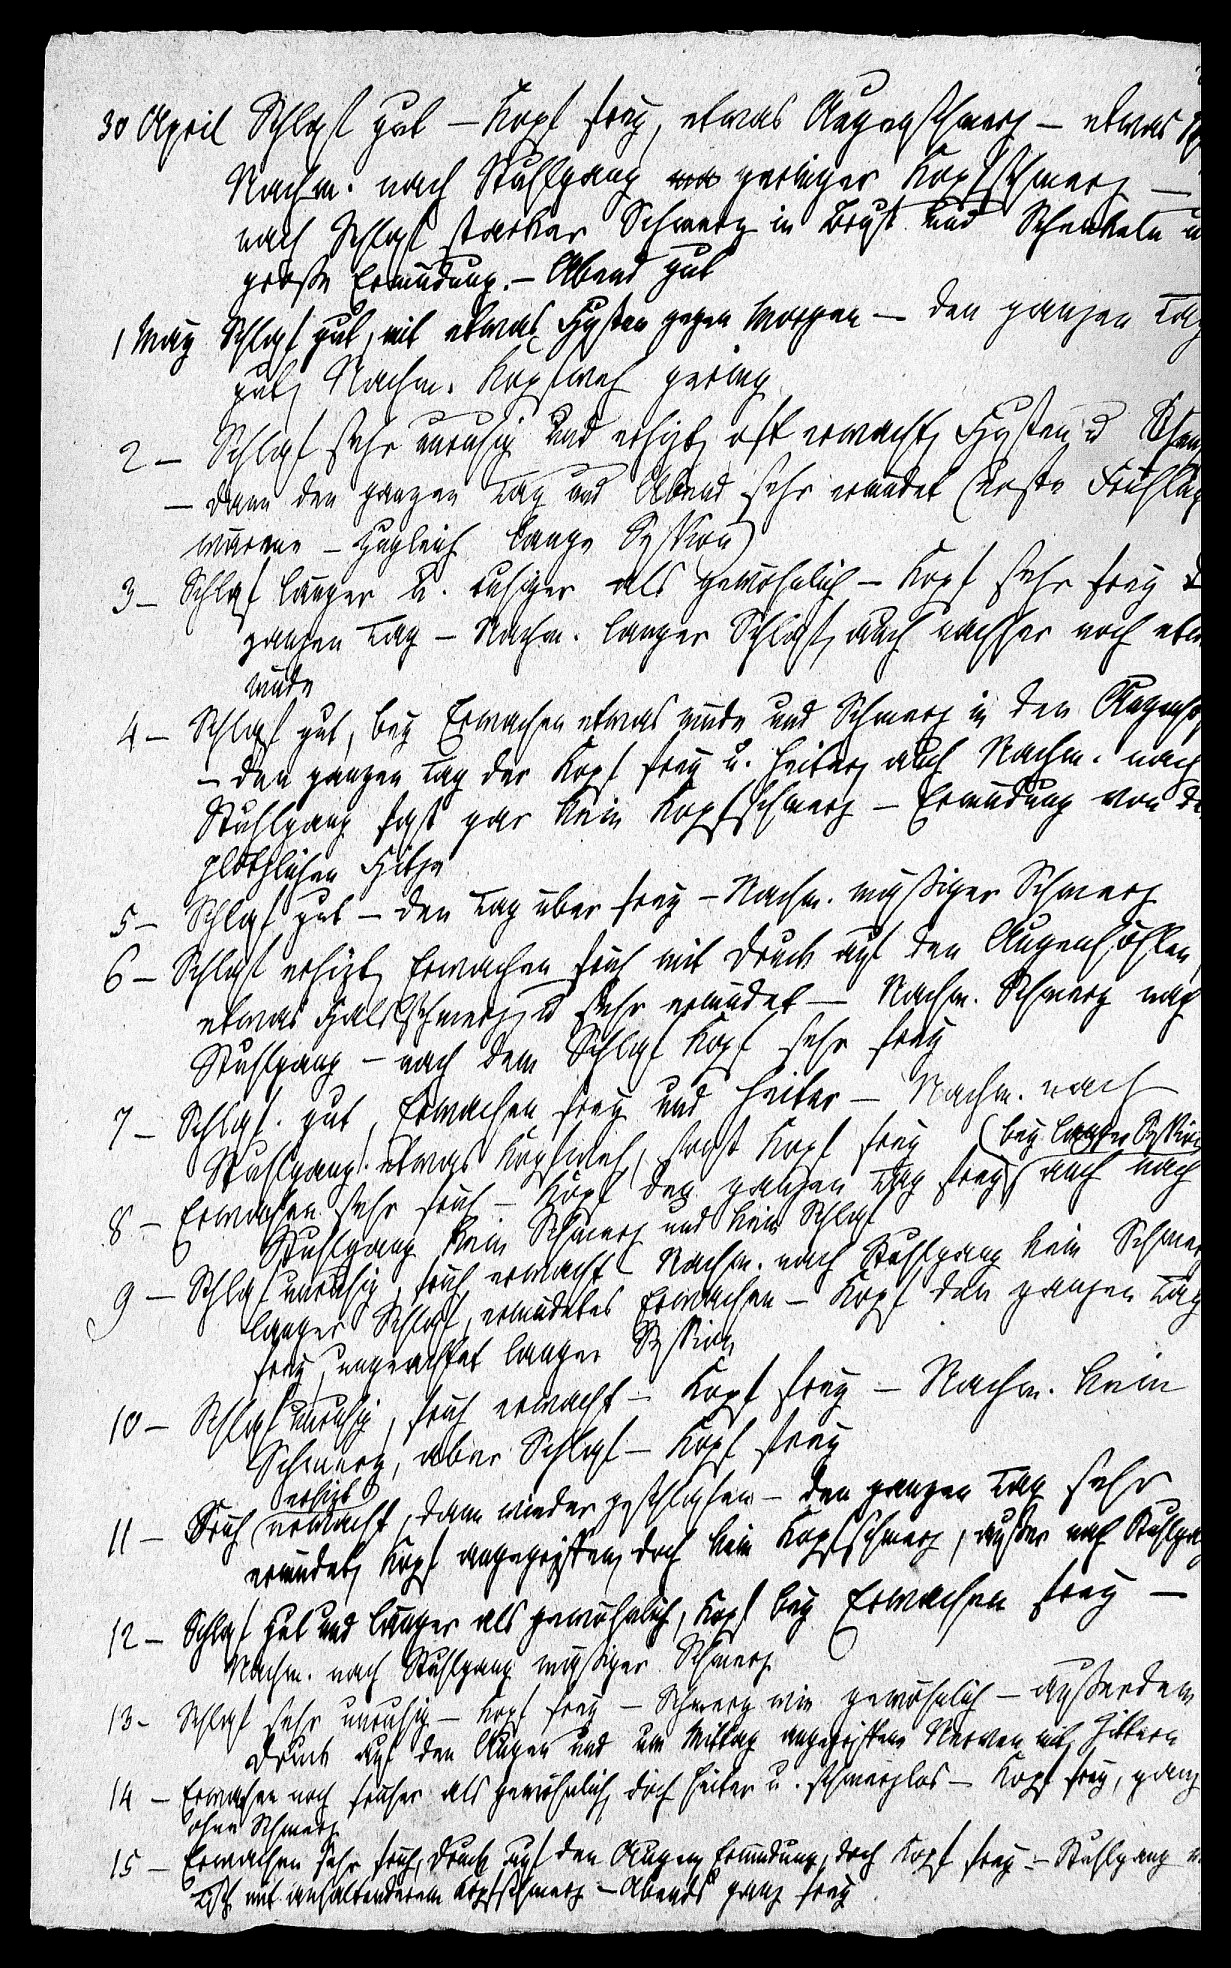 30 April Schlaf gut – Kopf frey, etwas Augenschmerz – etwas
Nachm. nach Stuhlgang geringer Kopfschmerz –
nach Schlaf starker Schmerz in Brust und Schenkeln u
große Ermüdung. – Abend gut
1 May Schlaf gut, mit etwas Husten gegen Morgen – den ganzen Tag
gut, Nachm. Kopfweh gering
2 – Schlaf sehr unruhig und erhizt, oft erwacht, Husten u
– dann den ganzen Tag und Abend sehr ermüdet (erste Frühlings
wärme – zugleich lange Session)
3 – Schlaf länger u. ruhiger als gewöhnlich – Kopf sehr frey d
ganzen Tag – Nachm. langer Schlaf, auch nachher noch etw
müde
4 – Schlaf gut, bey Erwachen etwas müde und Schmerz in den Augenh
– den ganzen Tag der Kopf frey u. heiter, auch Nachm. nach
Stuhlgang fast gar kein Kopfschmerz – Ermüdung von de
plötzlichen Hitze
5 – Schlaf gut – den Tag über frey – Nachm. mäßiger Schmerz
6 – Schlaf erhizt, Erwachen früh mit Druck auf den Augenhöhlen
etwas Halsschmerz, u sehr ermüdet – Nachm. Schmerz nach
Stuhlgang – nach dem Schlaf Kopf sehr frey
7 – Schlaf gut, Erwachen frey und heiter – Nachm. nach
Stuhlgang etwas Kopfweh, sonst Kopf frey
(bey langer Session
8 – Erwachen sehr früh – Kopf den ganzen Tag frey, auch nach
Stuhlgang kein Schmerz und kein Schlaf
9 – Schlaf unruhig, früh erwacht – Nachm. nach Stuhlgang kein Schmerz
langer Schlaf, ermüdetes Erwachen – Kopf den ganzen Tag
frey, ungeachtet langer Session
10 – Schlaf unruhig, früh erwacht – Kopf frey – Nachm. kein
Schmerz, aber Schlaf – Kopf frey
erhizt
11 – Früh erwacht, dann wieder geschlafen – den ganzen Tag sehr
ermüdet, Kopf angegriffen, doch kein Kopfschmerz, außer nach Stuhlgang
12 – Schlaf gut und länger als gewöhnlich, Kopf bey Erwachen frey –
Nachm. nach Stuhlgang mäßiger Schmerz
13 – Schlaf sehr unruhig – Kopf frey – Schmerz wie gewöhnlich – außerdem
Druck auf den Augen und um Mittag angegriffene Nerven mit Zittern
14 – Erwachen noch früher als gewöhnlich, doch heiter u. schmerzlos – Kopf frey, ganz
ohne Schmerz
15 – Erwachen sehr früh, Druck auf den Augen, Ermüdung, doch Kopf frey – Stuhlgang
Tisch mit anhaltenderem Kopfschmerz – Abends ganz frey